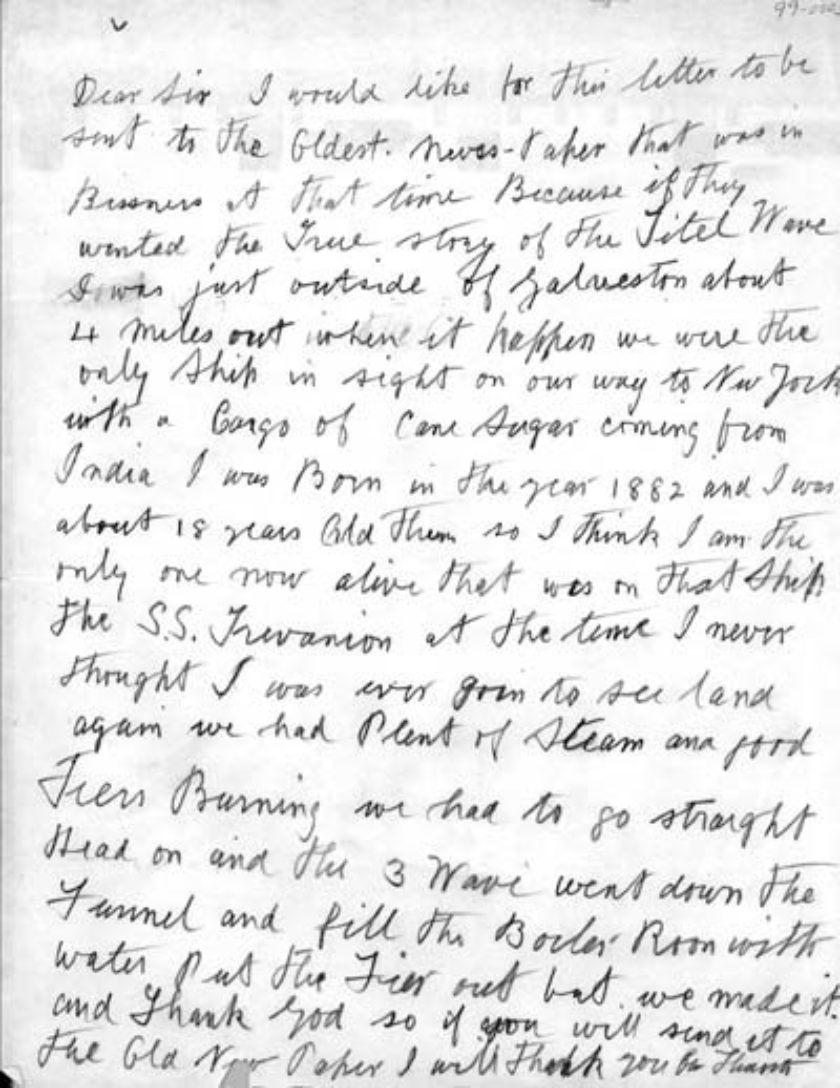 99-002
Dear Sir I would like for this letter to be
sent to the Oldest. News-Paper that was in
Bissners at that time Because if they
wented the True story of the Titel Wave
I was just outside of Galveston about
4 miles out when it happen we were the
only Ship in sight on our way to New York
with a Cargo of Cane Sugar coming from
India I was Born in the year 1882 and I was
about 18 years Old Them so I think I am the
only one now alive that was on that Ship
the S.S. Trevanion at the time I never
thought I was ever goin to see land
again we had Plent of Steam and good
Fiers Burning we had to go straight
Head on and the 3 Wave went down the
Funnel and fill the Boeler Room with
water Put the Fier out but we made it.
and Thank God so if you will send it to
the Old New Paper I will thank you